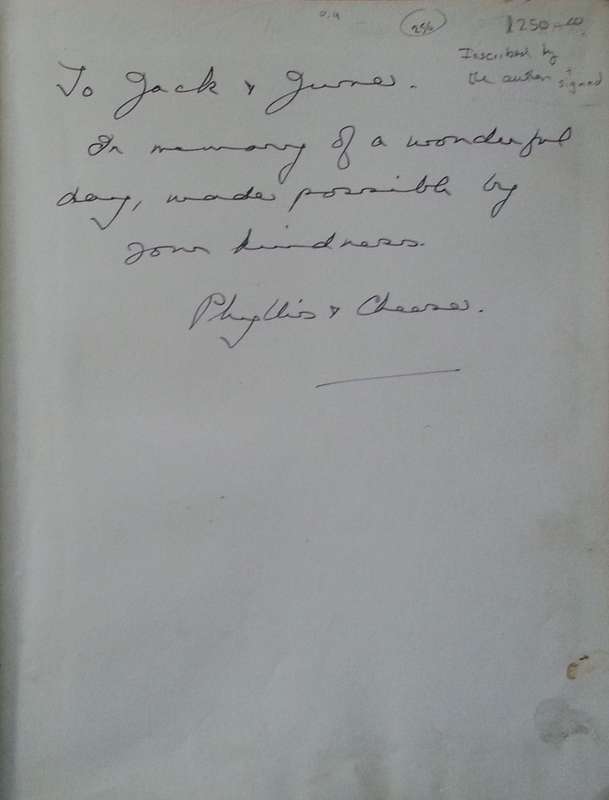 256
$250.00
Inscribed by
the author &
signed
To Jack & June.
In memory of a wonderful
day, made possible by
your kindness.
Phyllis & Cheese.